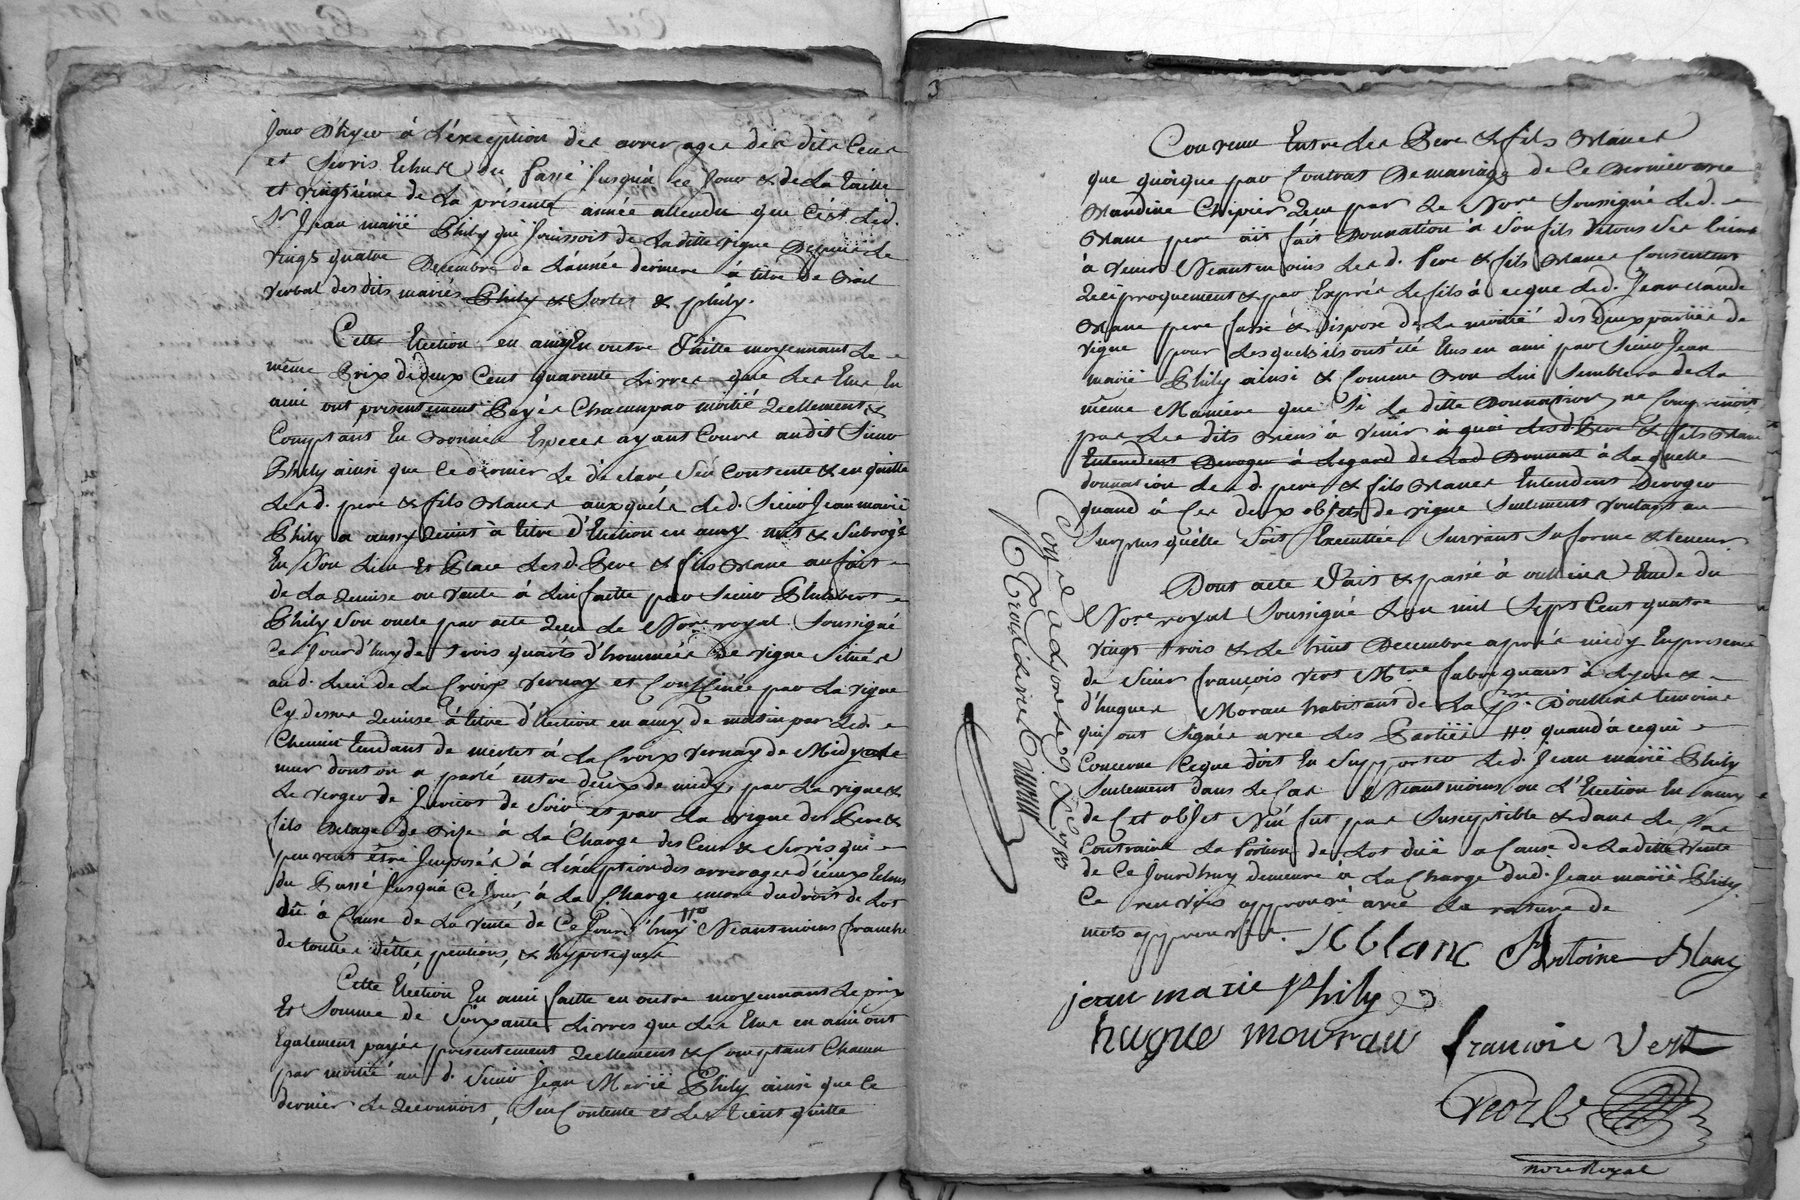 jour d'hyer à l'éxception des arrerages des dits Cens
et servis Echus du passé jusqu'à ce jour & de la taille
et vingtiéme de la présente année attendu que C'est led.
Sr Jean marië Phily qui jouissoit de ladite vigne Depuis le
vingt quatre Decembre de l'année derniere à titre de Bail
verbal des dits mariés Phily & Sorlin & phily.
Cette Election en amy En outre faitte moyennant le
même Prix de deux Cent quarente Livres que les Elus En
ami ont présentement Payés Chacun par moitié Réellement &
Comptant En Bonnes Especes ayant Cours audit Sieur
Phily ainsi que ce dernier Le déclare S'en Contente & en quitte
Lesd. pere & fils Blancs auxquels led. Sieur Jean marië
Phily a aussy Remis à titre d'Election en amy mis & Subrogés
En Son Lieu et Place Lesd. Pere & fils Blanc au fait
de la Remise ou vente à lui faitte par Sieur Philibert
Phily Son oncle par acte Reçu le Nore royal Soussigné
Ce jourd'huy de trois quarts d'hommées de vigne Situés
aud. Lieu de La Croix Vernay et Confinée par La vigne
Cy dessus Remise à titre d'Election en amy de matin par Led.
Chemin tendant de mertet à la Croix vernay de Midy Le
mur dont on a parlé entre deux de midy, par La vigne &
Le verger de de Soir et par La vigne des Pere &
fils de Bize à La Charge des Cens & Servis qui
peuvent être Imposés à L'éxception des arrerages d'iceux Echus
du Passé jusqu'à Ce jour, à La Charge encore du droit de Lot
dû à Cause de La vente de Ce jourd'huy Neantmoins franche
de touttes dettes, pentions, & hypoteques
Cette Election En ami faitte en outre moyennant Le prix
Et Somme de Soixante Livres que Les Elus en ami ont
Egalement payés présentement Réellement & Comptant Chacun
par moitié au d. Sieur Jean Marië Phily ainsi que Ce
dernier Le Reconnoit, S'en Contente et Les tient quitte
Convenu Entre Les Pere & fils Blancs
que quoique par Contrat De mariage de Ce Dernier avec
Blandine Chipier Reçu par Le Nore Soussigné Led.
Blanc pere ait fait Donnation à Son fils de tous Ses biens
à venir Neantmoins Les d. Pere & fils Blancs Consentent
Reciproquement & par Exprés Le fils à ce que Led. Jean Claude
Blanc pere fasse & Dispose de La moitié des deux parties de
vigne pour Lesquels ils ont été Elus en ami par Sieur Jean
marië Phily ainsi & Comme Bon Lui Semblera de La
même Maniere que Si La ditte Donnation ne Comprenoit
pas Les dits Biens à venir à quoi Lesd. Pere & fils Blanc
Entendent Deroger à L'egard de Lad. Donnat. à La quelle
donnation Les d. pere & fils Blancs Entendent Deroger
quand à Ces deux objets de vigne Seulement voulant au
Surplus qu'elle Soit Executtée Suivant Sa forme & teneur
Dont acte Fait & passé à oullins Etude du
Nore royal Soussigné L'an mil Sept Cent quatre
vingt trois & Le huit Decembre aprés midy En presence
de Sieur françois Vert Mtre fabriquant à Lyon &
d'hugues Morau habitant de La d'oullins temoins
qui ont Signés avec Les Parties quand à ce qui
Concerne Ce que doit En Supporter Led. Jean marië Phily
Seulement dans Le Cas Neantmoins ou L'Election En amy
de Cet objet N'en fut pas Susceptible & dans Le Cas
Contraire La Portion de Lot duë a Cause de Laditte Vente
de Ce Jourd'huy demeure a La Charge dud. Jean marië Phily.
Ce renvois approuvé avec La rature de
mots approuvés.
blanc Antoine Blanc
jean marie Phily
hugue mourau francois Vert
nore Royal